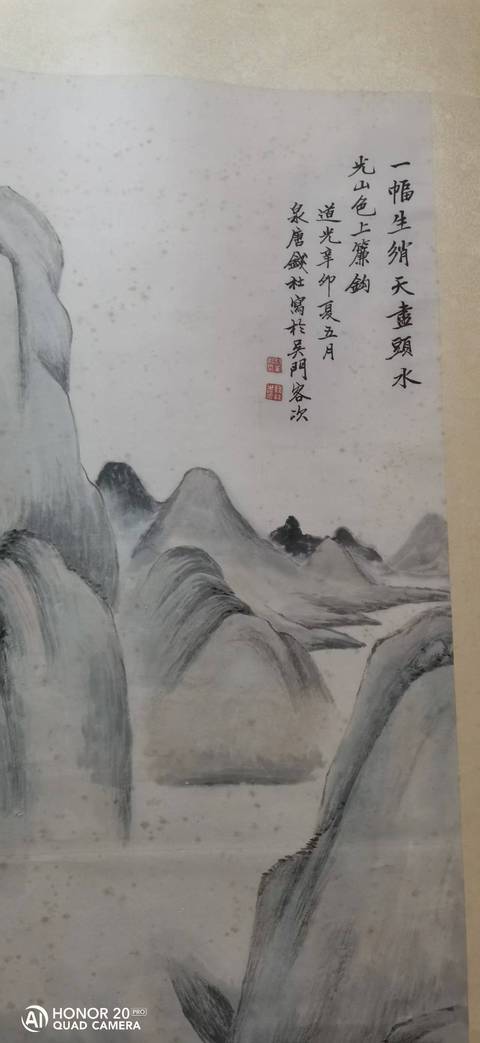 一幅生綃天盡頭水
光山色上簾鈎
道光辛卯夏五月
泉唐錢杜寫於吳門客次
HONOR 20 PRO
AI QUAD CAMERA